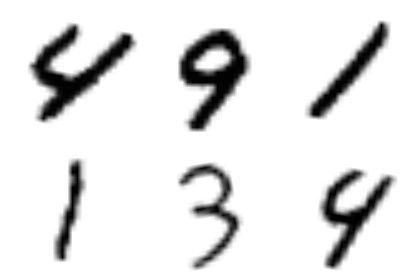 4 9 1
1 3 4